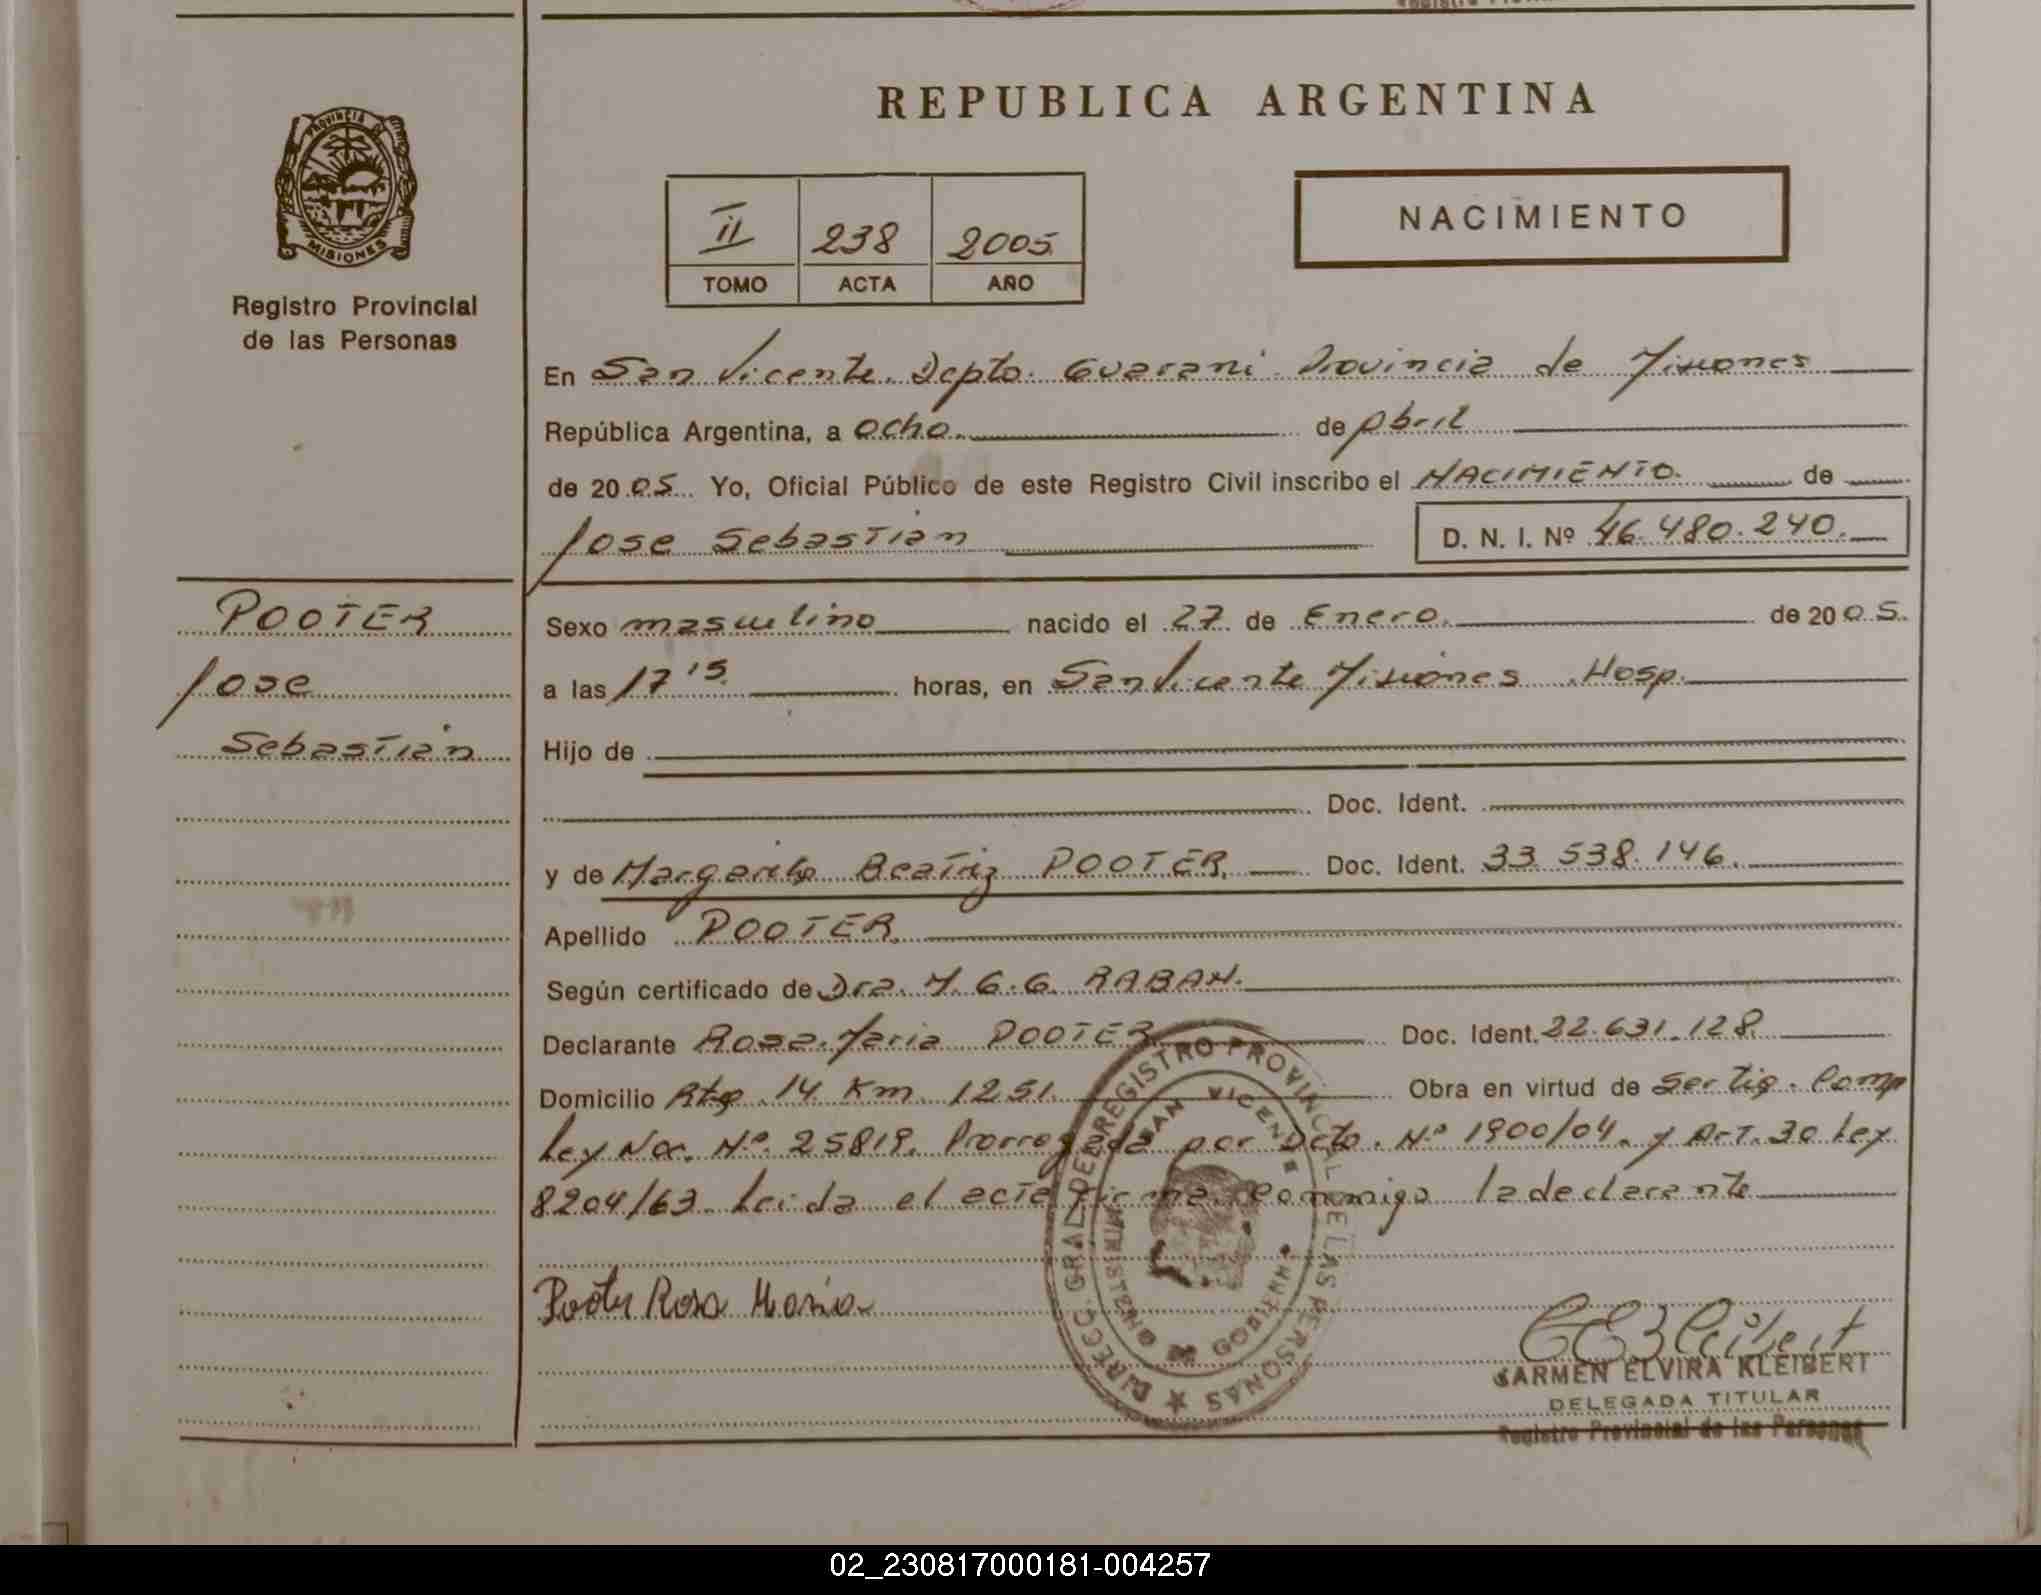 REPUBLICA ARGENTINA
PROVINCIA DE
MISIONES
Registro Provincial
de las Personas
II 238 2005
TOMO ACTA AÑO
NACIMIENTO
En San Vicente. Dcpto. Guarani. Provincia de Misiones
República Argentina, a ocho. de Abril
de 20 05 Yo, Oficial Público de este Registro Civil inscribo el NACIMIENTO. de
Jose Sebastián D. N. I. Nº 46.480.240.
POOTER
Jose
Sebastián
Sexo masculino nacido el 27 de Enero. de 20 05.
a las 17 15. horas, en San Vicente Misiones Hosp.
Hijo de
Doc. Ident.
y de Margarita Beatriz POOTER. Doc. Ident. 33.538.146.
Apellido POOTER.
Según certificado de Dra. M. G. G. RABAN.
Declarante Rosa Maria POOTER. Doc. Ident. 22.631.128.
Domicilio Rta. 14 Km 1251. Obra en virtud de Sertig. Comp
Ley Nac. Nº 25819. Prorrogada por Dcto. Nº 1900/04. y ART. 30 Ley
8204/63. Leida el acta firma conmigo la declarante
Pooter Rosa Maria
DIREC. GRAL. DEL REGISTRO PROVINCIAL DE LAS PERSONAS
SAN VICENTE
CARMEN ELVIRA KLEIBERT
DELEGADA TITULAR
Registro Provincial de las Personas
02_230817000181-004257